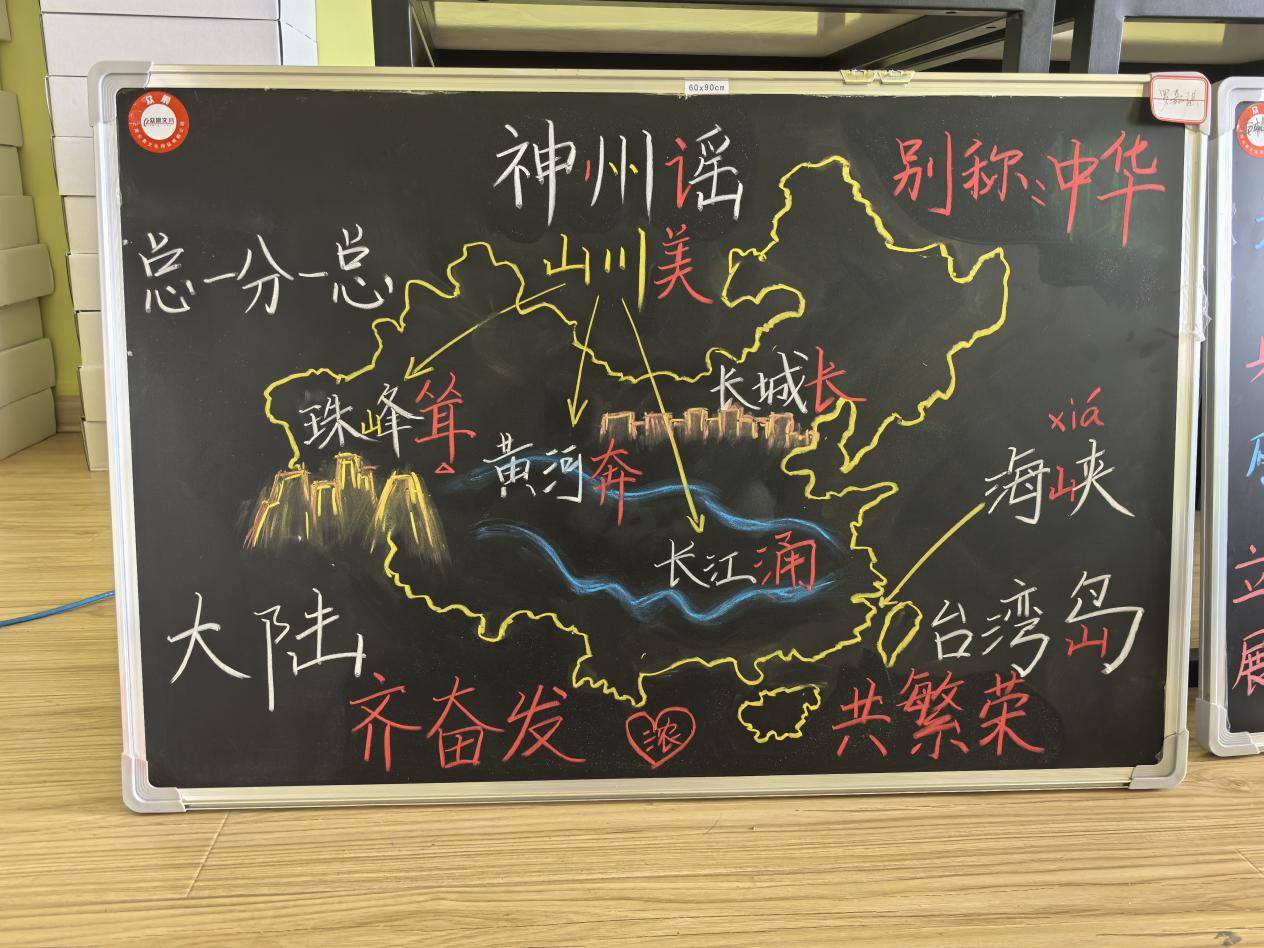 60x90cm
众凯
神州谣
别称:中华
总-分-总
山川美
长城长
珠峰耸
黄河奔
xiá
海峡
长江涌
大陆
台湾岛
齐奋发
浓
共繁荣
立
展